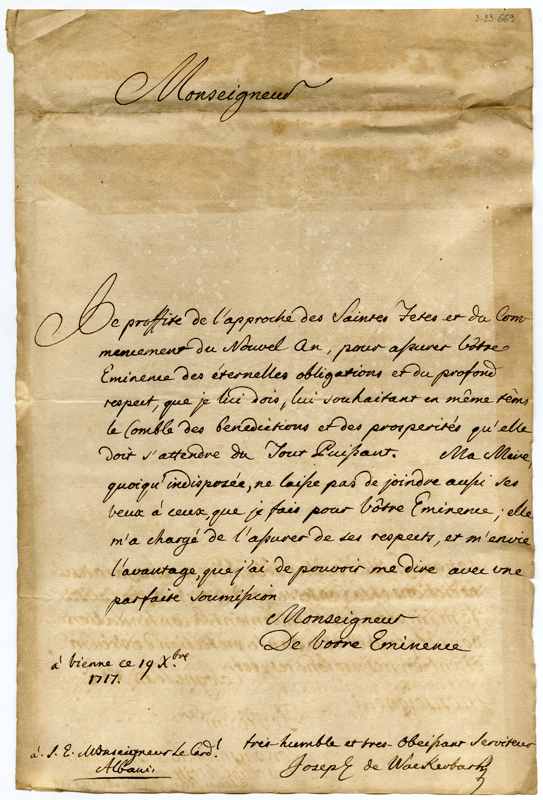 3-23-669
Monseigneur
Je proffite de l'approche des Saintes Fetes et du Com-
mencement du Nouvel An, pour assurer Vôtre
Eminence des éternelles obligations et du profond
respect, que je lui dois, lui souhaitant en même têms
le Comble des benedictions et des prosperités qu'elle
doit s'attendre du Tout Puissant. Ma Mère,
quoiqu'indisposée, ne laisse pas de joindre aussi ses
veux à ceux, que je fais pour Vôtre Eminence; elle
m'a chargé de l'assurer de ses respects, et m'envie
l'avantage, que j'ai de pouvoir me dire avec une
parfaite soumission
Monseigneur
De Votre Eminence
à Vienne ce 19 X.bre
1717.
à S. E. Monseigneur Le Card.l
Albani
tres-humble et tres-obeissant Serviteur
Joseph de Wackerbarth